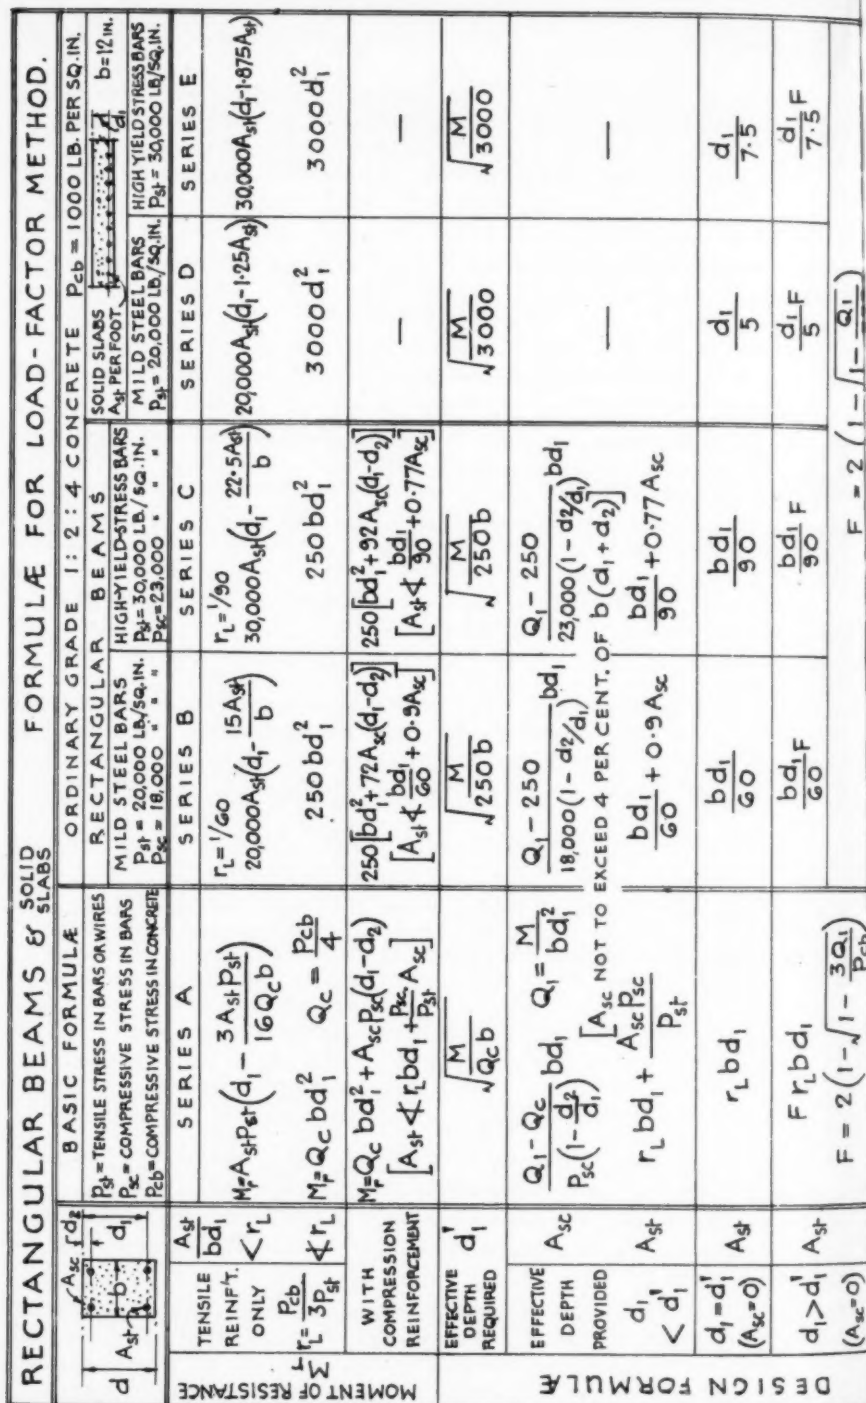 RECTANGULAR BEAMS & SOLID SLABS FORMULÆ FOR LOAD-FACTOR METHOD.
Asc d2
d b d1
Ast
BASIC FORMULÆ
Pst=TENSILE STRESS IN BARS OR WIRES
Psc=COMPRESSIVE STRESS IN BARS
Pcb=COMPRESSIVE STRESS IN CONCRETE
ORDINARY GRADE 1:2:4 CONCRETE Pcb = 1000 LB. PER SQ.IN.
RECTANGULAR BEAMS
MILD STEEL BARS
Pst = 20,000 LB/SQ.IN.
Psc = 18,000 " " "
HIGH-YIELD-STRESS BARS
Pst=30,000 LB/SQ.IN.
Psc=23,000 " " "
SOLID SLABS
Ast PER FOOT
d1 b=12IN.
MILD STEEL BARS
Pst= 20,000 LB/SQ.IN.
HIGH YIELD STRESS BARS
Pst=30,000 LB/SQ.IN.
SERIES A SERIES B SERIES C SERIES D SERIES E
MOMENT OF RESISTANCE Mr
TENSILE REINF'T. ONLY
rL = Pcb/3Pst
Ast/bd1 < rL
Mr=AstPst(d1 - 3AstPst/16Qcb)
rL=1/60
20,000Ast(d1 - 15Ast/b)
rL=1/90
30,000Ast(d1 - 22·5Ast/b)
20,000Ast(d1-1·25Ast)
30,000Ast(d1-1·875Ast)
≮ rL
Mr=Qc bd1² Qc = Pcb/4
250bd1² 250bd1² 3000d1² 3000d1²
WITH COMPRESSION REINFORCEMENT
Mr=Qc bd1² + AscPsc(d1-d2)
[Ast ≮ rLbd1 + Psc/Pst Asc]
250[bd1²+72Asc(d1-d2)]
[Ast ≮ bd1/60 + 0·9Asc]
250[bd1²+92Asc(d1-d2)]
[Ast ≮ bd1/90 + 0·77Asc]
— —
DESIGN FORMULÆ
EFFECTIVE DEPTH REQUIRED d1'
√M/Qcb √M/250b √M/250b √M/3000 √M/3000
EFFECTIVE DEPTH PROVIDED
d1 < d1'
Asc
Q1-Qc/Psc(1-d2/d1) bd1 Q1= M/bd1²
Q1-250/18,000(1-d2/d1) bd1
Q1-250/23,000(1-d2/d1) bd1
— —
[Asc NOT TO EXCEED 4 PER CENT. OF b(d1+d2)]
Ast
rLbd1 + AscPsc/Pst
bd1/60 + 0·9Asc
bd1/90 + 0·77Asc
d1=d1'
(Asc=0)
Ast
rLbd1 bd1/60 bd1/90 d1/5 d1/7·5
d1>d1'
(Asc=0)
Ast
FrLbd1 bd1/60 F bd1/90 F d1/5 F d1/7·5 F
F = 2(1-√1 - 3Q1/Pcb)
F = 2(1-√1 - Q1